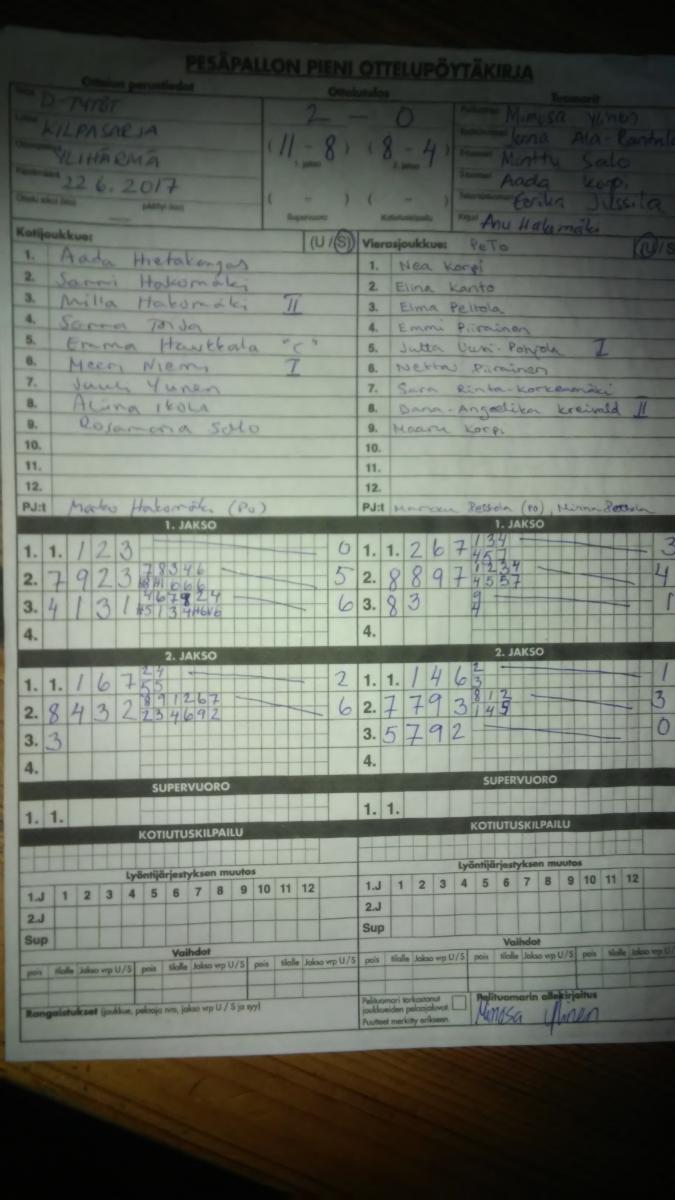 PESÄPALLON PIENI OTTELUPÖYTÄKIRJA
Ottelun perustiedot
Ottelutulos
Tuomarit
D-TYTÖT
KILPASARJA
YLIHÄRMÄ
22.6.2017
2 – 0
(11 – 8) (8 – 4)
( – ) ( – )
Supervuoro Kotiutuskilpailu
Mimosa Ylinen
Jenna Ala-Rantala
Minttu Salo
Aada Korpi
Eerika Jussila
Anu Hakomäki
Kotijoukkue: (U/S)
1. Aada Hietakangas
2. Sanni Hakomäki
3. Milla Hakomäki II
4. Sanna
5. Emma Hautkala "C"
6. Meeri Niemi I
7. Juuli Ylinen
8. Aliina Ikola
9. Rosamaria Salo
10.
11.
12.
PJ:t Marko Hakomäki (PV)
Vierasjoukkue: PeTo (U/S)
1. Nea Korpi
2. Elina Kanto
3. Elma Peltola
4. Emmi Piirainen
5. Jutta Uusi-Pohjola I
6. Netta Piirainen
7. Sara Rinta-Korkeamäki
8. Dana-Angeelika Kreivald II
9. Maaru Korpi
10.
11.
12.
PJ:t
1. JAKSO
1. 1. 1 2 3 0
2. 7 9 2 3 5
3. 4 1 3 1 6
4.
1. JAKSO
1. 1. 2 6 7 1 3 4 4 5 7 3
2. 8 8 9 7 1 2 3 4 4 5 5 7 4
3. 8 3 1
4.
2. JAKSO
1. 1. 1 6 7 2 4 5 5 2
2. 8 4 3 2 8 9 1 2 6 7 2 3 4 6 9 2 6
3. 3
4.
2. JAKSO
1. 1. 1 4 6 2 3 1
2. 7 7 9 3 8 1 2 1 4 5 3
3. 5 7 9 2 0
4.
SUPERVUORO
1. 1.
SUPERVUORO
1. 1.
KOTIUTUSKILPAILU
KOTIUTUSKILPAILU
Lyöntijärjestyksen muutos
1.J 1 2 3 4 5 6 7 8 9 10 11 12
2.J
Sup
Lyöntijärjestyksen muutos
1.J 1 2 3 4 5 6 7 8 9 10 11 12
2.J
Sup
Vaihdot
pois tilalle Jakso vrp U/S pois tilalle Jakso vrp U/S pois tilalle Jakso vrp U/S
Vaihdot
pois tilalle Jakso vrp U/S pois tilalle Jakso vrp U/S pois tilalle Jakso vrp U/S
Rangaistukset (joukkue, pelaaja nro, jakso vrp U / S ja syy)
Pelituomari tarkastanut
joukkueiden pelaajaluvat
Puutteet merkitty erikseen
Pelituomarin allekirjoitus
Mimosa Ylinen